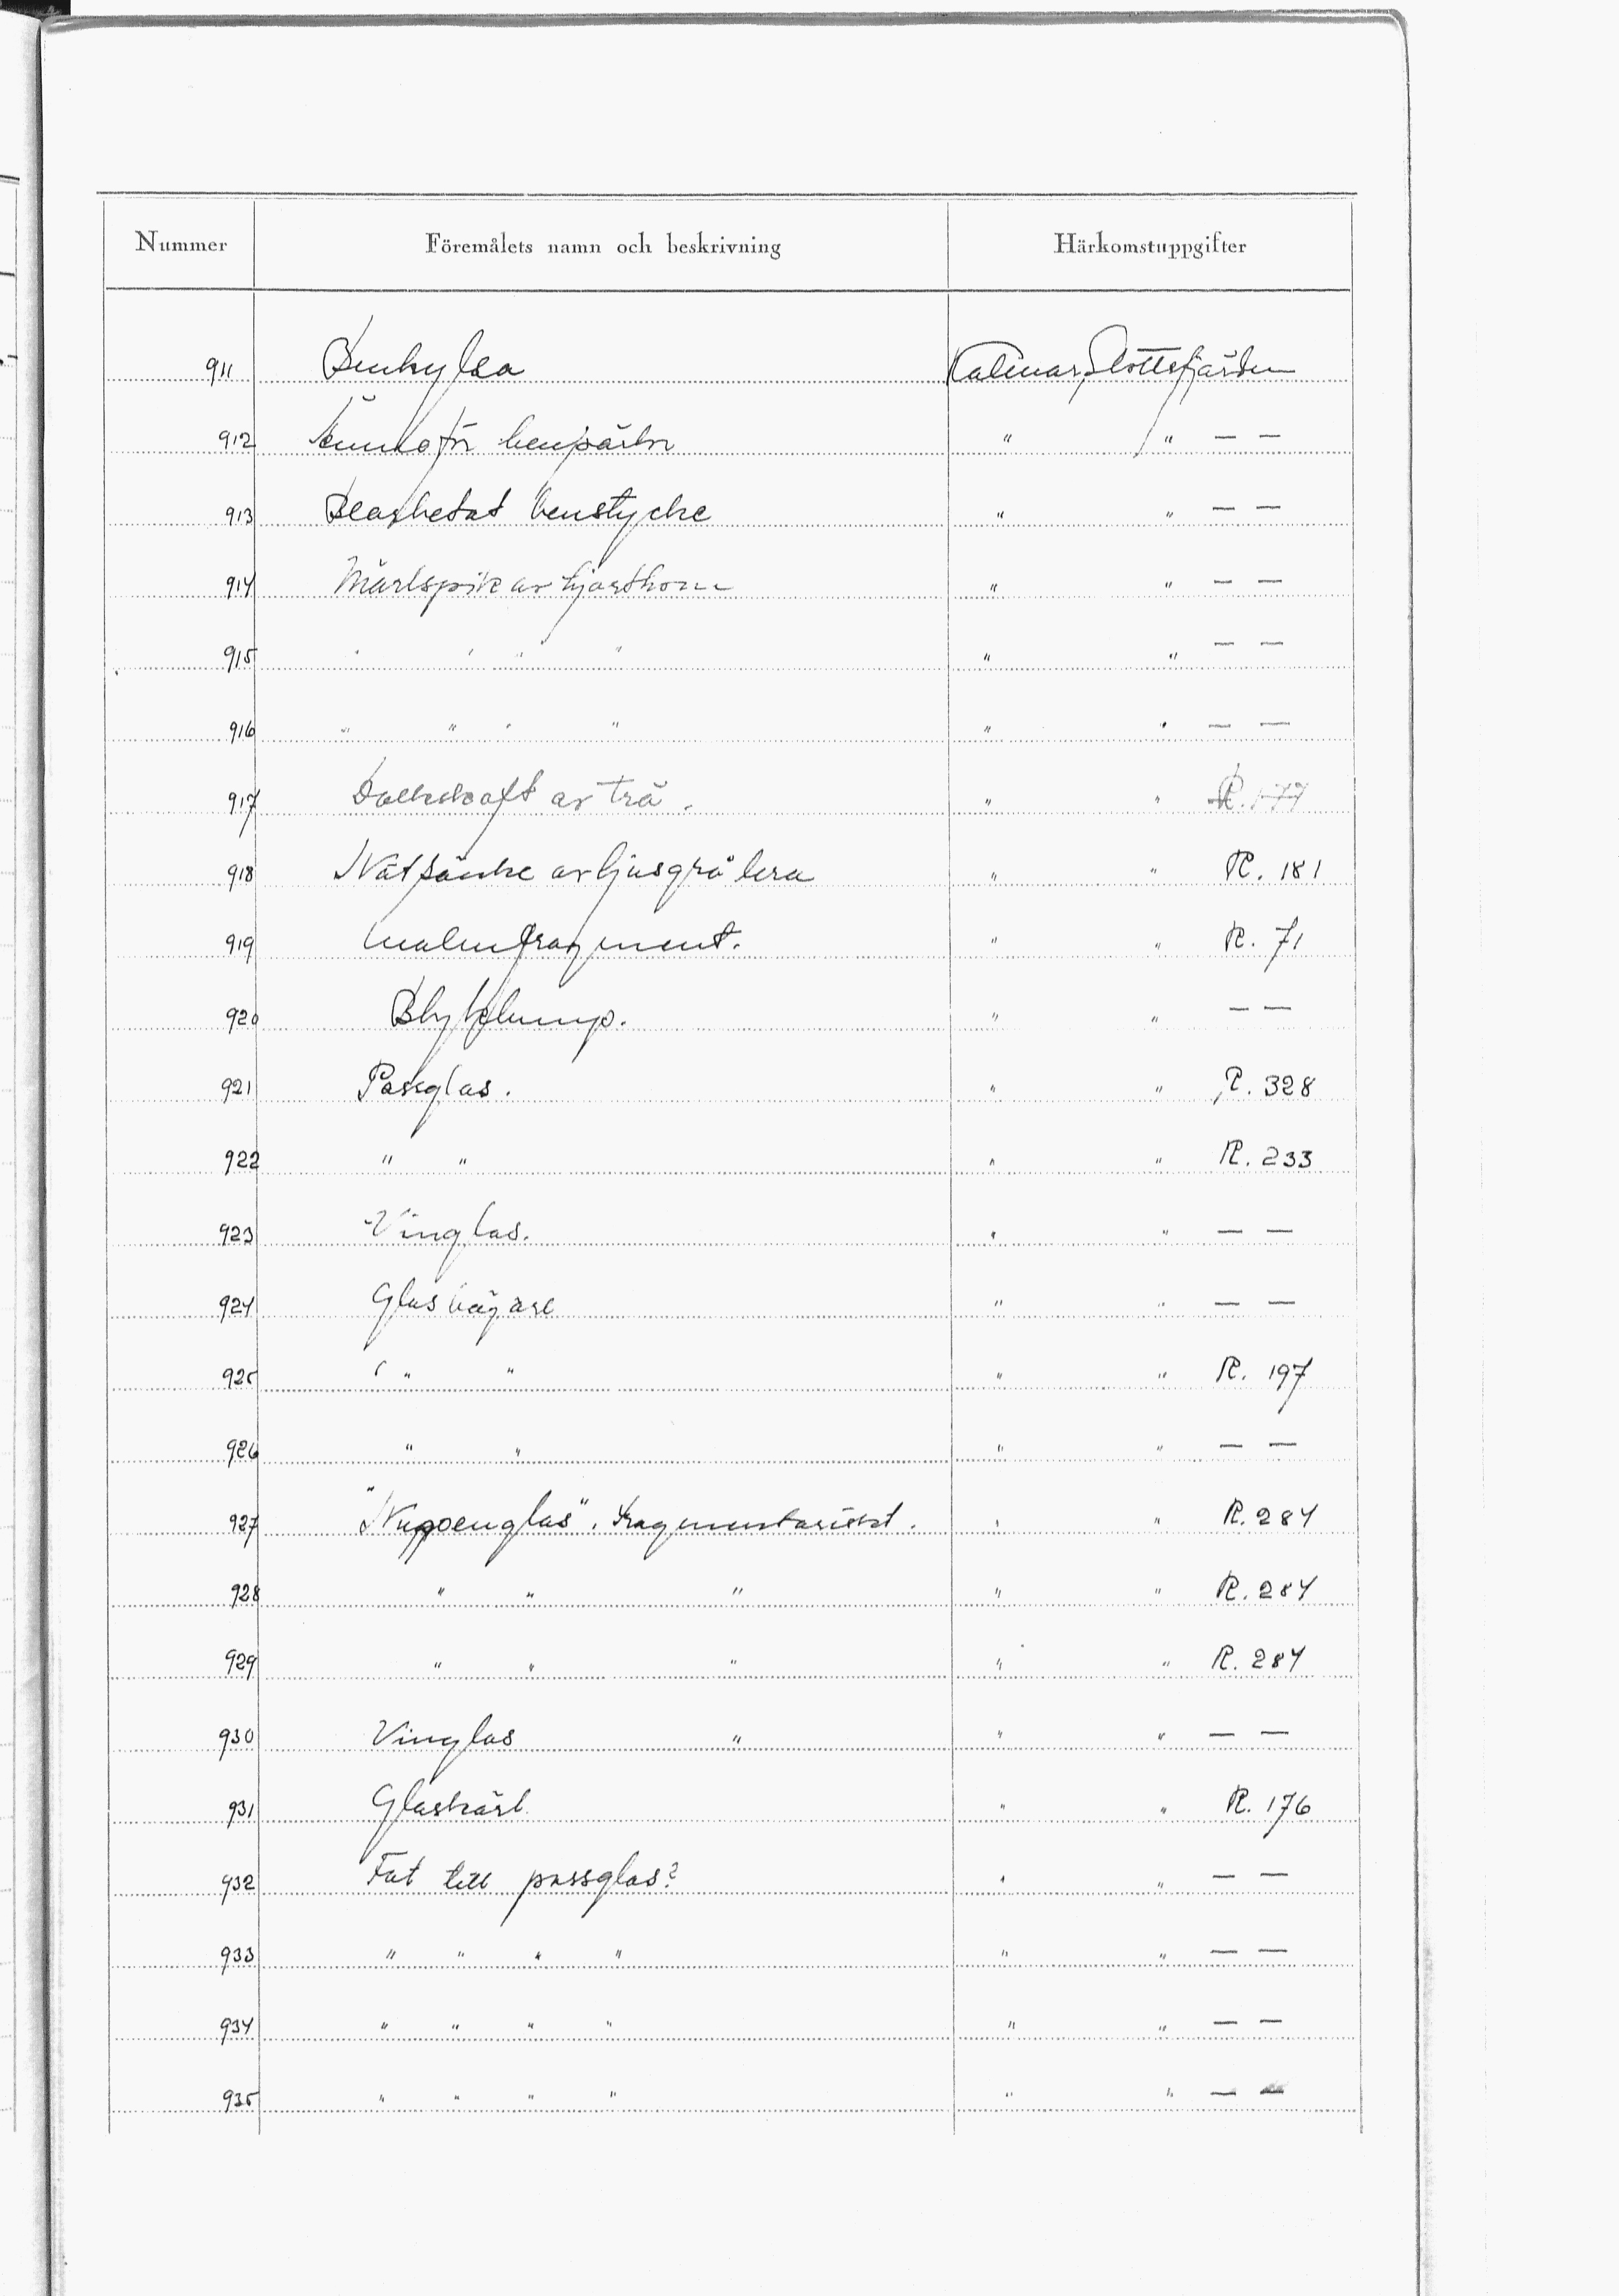 Nummer Föremålets namn och beskrivning Härkomstuppgifter
911 Benhylsa Kalmar, Slottsfjärden
912 Ämne för benpärlor " " — —
913 Bearbetat benstycke " " — —
914 Märlspik av hjorthorn " " — —
915 " " " " " " — —
916 " " " " " " — —
917 Dolkskaft av trä. " " R. 177
918 Nätsänke av ljusgrå lera " " R. 181
919 Malmfragment. " " R. 71
920 Blyklump. " " — —
921 Passglas. " " R. 328
922 " " " " R. 233
923 Vinglas. " " — —
924 Glasbägare " " — —
925 " " " " R. 197
926 " " " " — —
927 "Nuppenglas". Fragmentariskt. " " R. 284
928 " " " " " R. 284
929 " " " " " R. 284
930 Vinglas " " " — —
931 Glaskärl " " R. 176
932 Fat till passglas? " " — —
933 " " " " " " — —
934 " " " " " " — —
935 " " " " " " — —